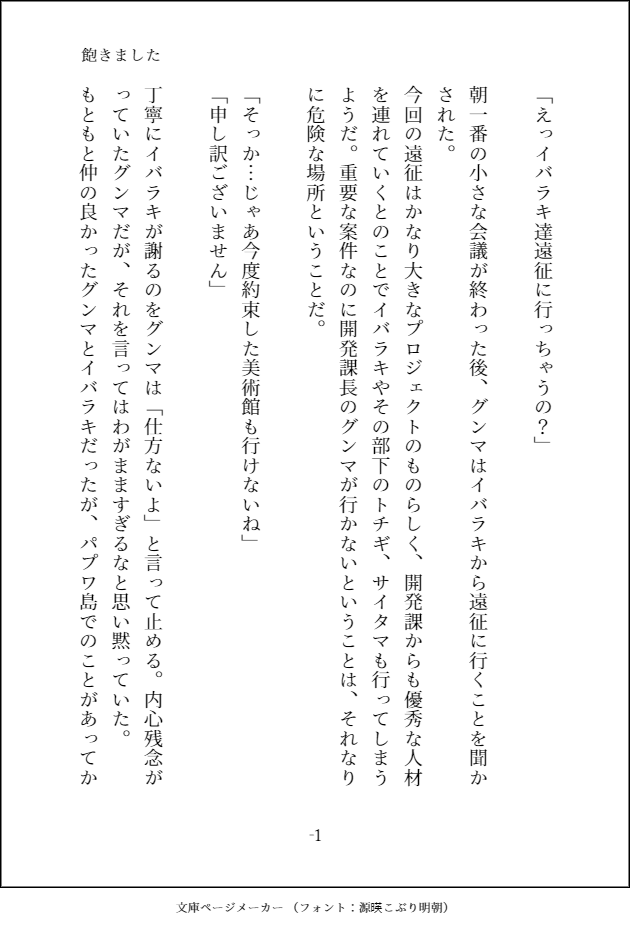 飽きました
「えっイバラキ達遠征に行っちゃうの？」
朝一番の小さな会議が終わった後、グンマはイバラキから遠征に行くことを聞か
された。
今回の遠征はかなり大きなプロジェクトのものらしく、開発課からも優秀な人材
を連れていくとのことでイバラキやその部下のトチギ、サイタマも行ってしまう
ようだ。重要な案件なのに開発課長のグンマが行かないということは、それなり
に危険な場所ということだ。
「そっか…じゃあ今度約束した美術館も行けないね」
「申し訳ございません」
丁寧にイバラキが謝るのをグンマは「仕方ないよ」と言って止める。内心残念が
っていたグンマだが、それを言ってはわがまますぎるなと思い黙っていた。
もともと仲の良かったグンマとイバラキだったが、パプワ島でのことがあってか
-1
文庫ページメーカー （フォント：源暎こぶり明朝）